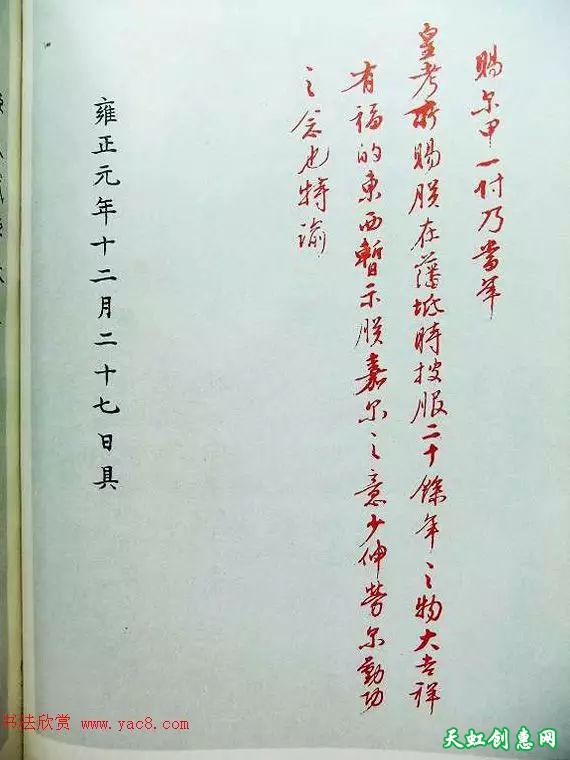 賜尔甲一付乃當年
皇考所賜朕在藩坻時披服二十餘年之物大吉祥
有福的東西暫示朕嘉尔之意少伸勞尔勤功
之念也特諭
雍正元年十二月二十七日具
书法欣赏 www.yac8.com
天虹创惠网